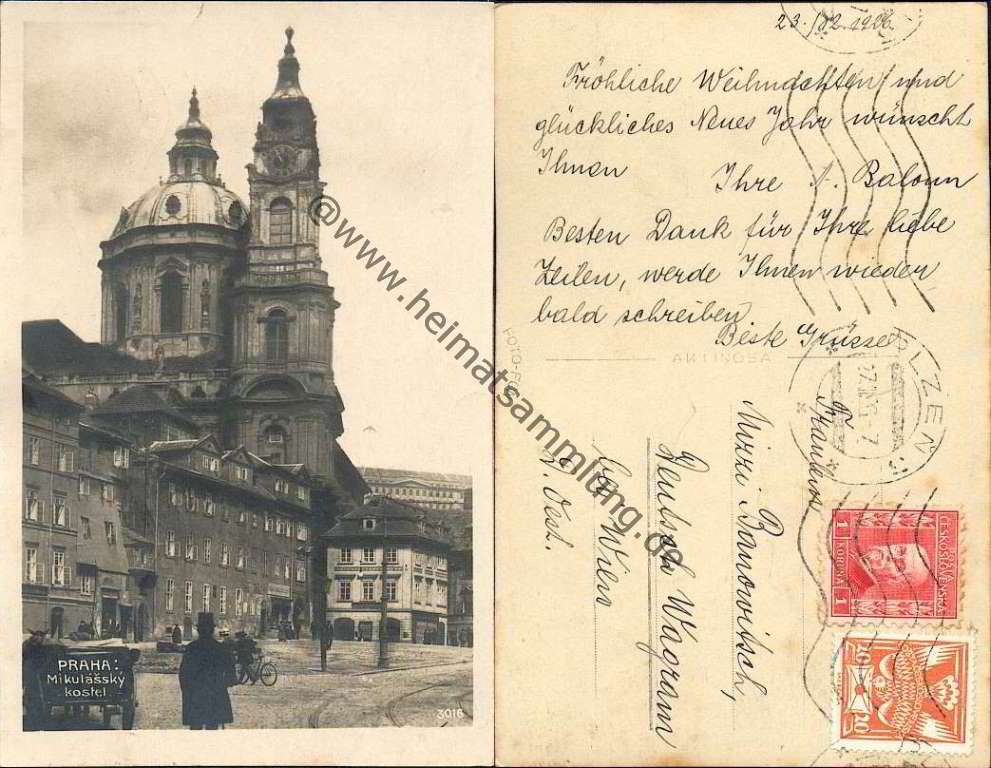 PRAHA:
Mikulášský
kostel.
3016
@www.heimatsammlung.de
23./12.1926
Fröhliche Weihnachten und
glückliches Neues Jahr wünscht
Ihnen Ihre A. Balounn
Besten Dank für Ihre liebe
Zeilen, werde Ihnen wieder
bald schreiben
Beste Grüsse
AKTINOSA
PLZEŇ
Mizzi Banowitsch,
Deutsch Wagram
bei Wien
N. Oest.
1 ČESKOSLOVENSKÁ
1 KORUNA 1
20 20